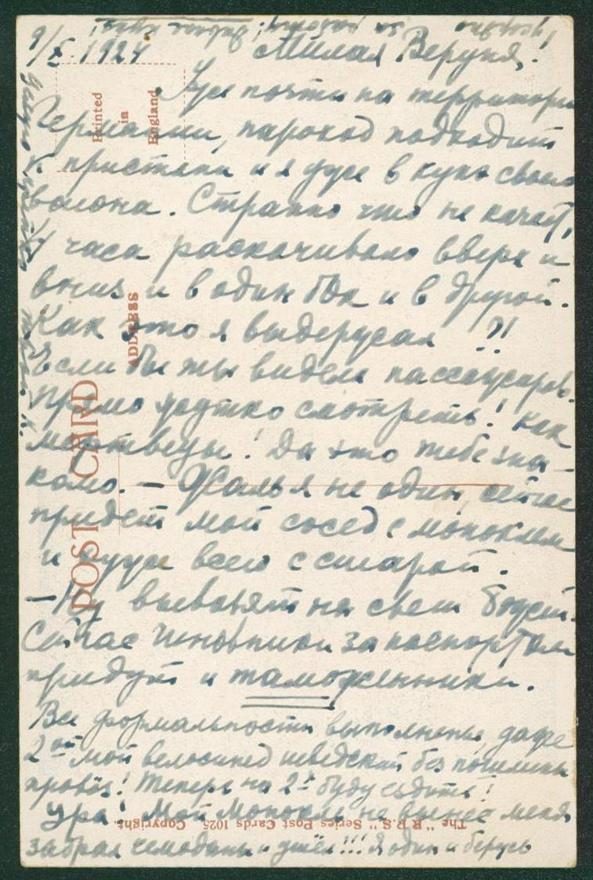 9/X 1924 Милая Веруня!
Уже почти на территории
Германии, пароход подходит
к пристани и я уже в купэ своего
вагона. Странно что не качает,
4 часа раскачивало вверх и
вниз и в один бок и в другой.
Как это я выдержал ?!
Если бы ты видела пассажиров.
Прямо жутко смотреть! Как
мертвецы! Да это тебе зна-
комо. – Жаль я не один, сейчас
придет мой сосед с моноклем
и
– Ну вывозят на свет божий.
Сейчас чиновники за паспортом
придут и таможенники.
Все формальности выполнены, даже
2ой мой велосипед шведский без пошлины
провёз! Теперь на 2х буду ездить!
Ура! Мой Монокль не вынес меня
забрал чемоданы и ушёл!!! Я один и берусь
Printed
in
England
ADDRESS
POST CARD
The "R.P.S." Series Post Cards 1025 Copyright.